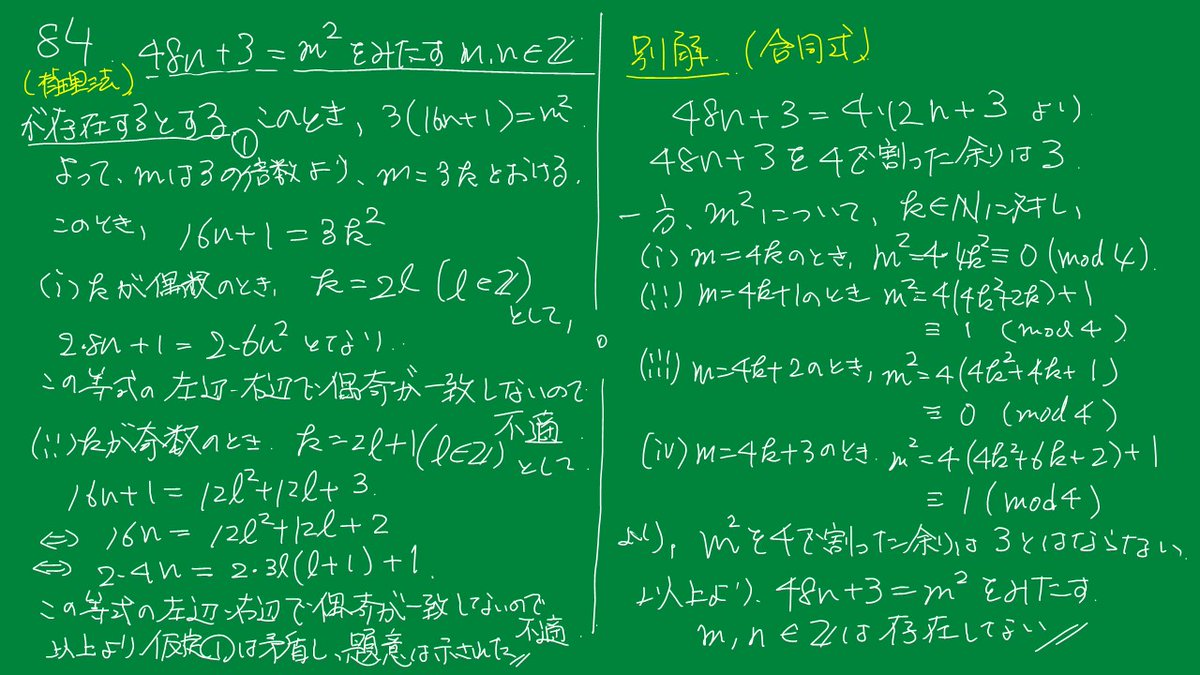 84
48n+3=m²をみたす m,n∈ℤ
(背理法)
が存在するとする。① このとき, 3(16n+1)=m²
よって, mは3の倍数より, m=3kとおける.
このとき, 16n+1=3k²
(i) kが偶数のとき, k=2l (l∈ℤ)
として,
2・8n+1=2・6l²となり.
この等式の左辺・右辺で偶奇が一致しないので
不適
(ii) kが奇数のとき. k=2l+1(l∈ℤ)
として
16n+1=12l²+12l+3
⇔ 16n=12l²+12l+2
⇔ 2・4n=2・3l(l+1)+1.
この等式の左辺・右辺で偶奇が一致してないので
不適
以上より仮定①は矛盾し、題意は示された//
別解 (合同式)
48n+3=4・12n+3 より
48n+3を4で割った余りは3.
一方, m²について, k∈ℕに対し,
(i) m=4kのとき, m²=4・4k²≡0 (mod 4).
(ii) m=4k+1のとき m²=4(4k²+2k)+1
≡ 1 (mod 4)
(iii) m=4k+2のとき, m²=4(4k²+4k+1)
≡ 0 (mod 4)
(iv) m=4k+3のとき. m²=4(4k²+6k+2)+1
≡ 1 (mod 4)
より, m²を4で割った余りは3とはならない.
以上より. 48n+3=m²をみたす
m,n∈ℤは存在してない//